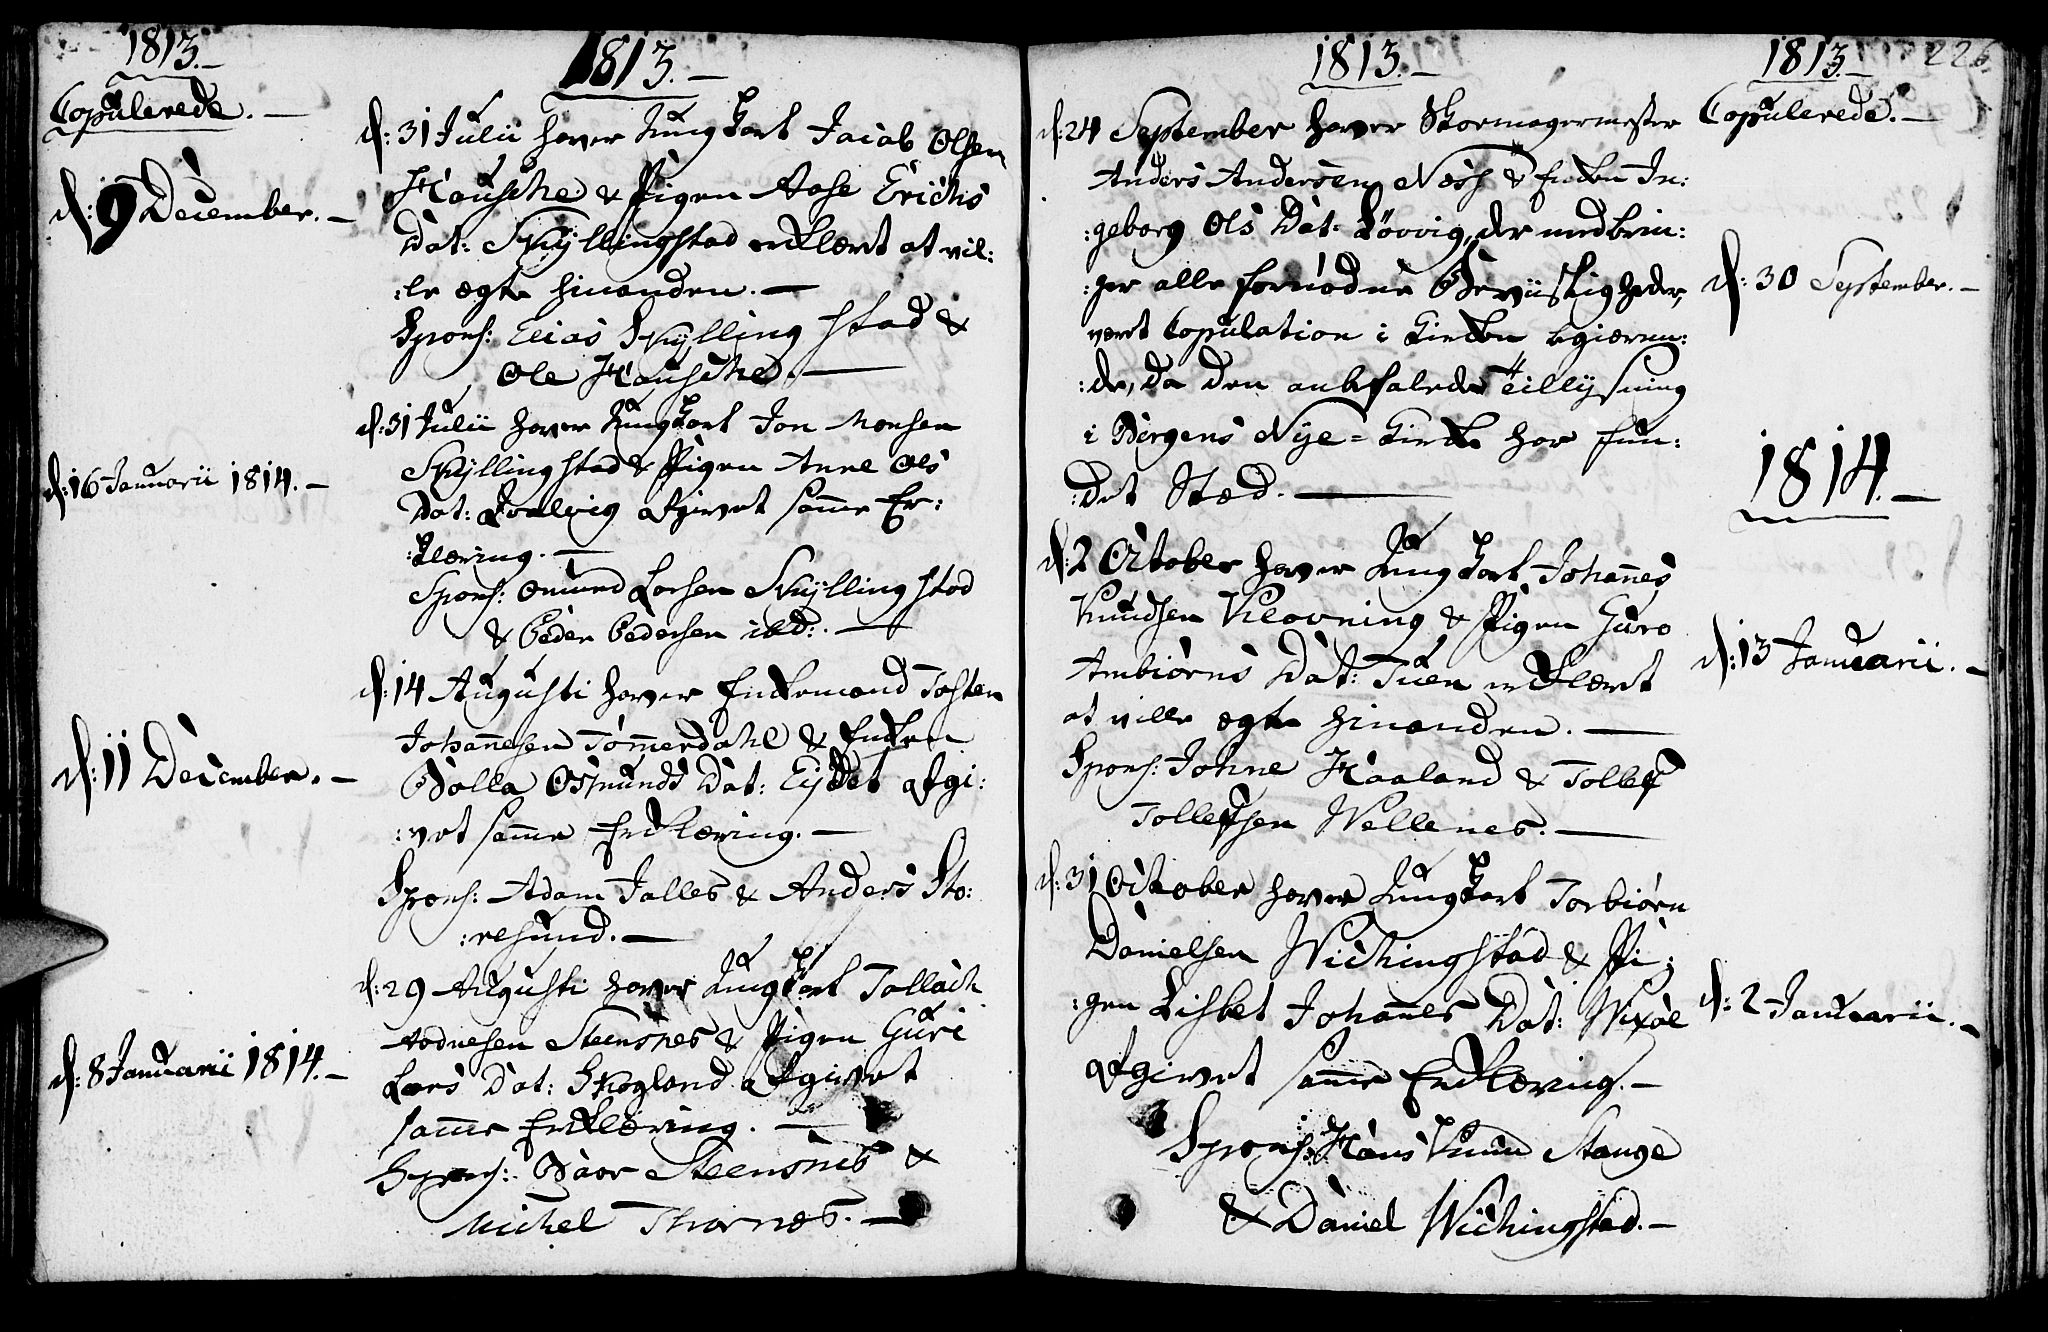 1813.-
Copulerede. -
d: 9 December. -
d: 16 Januarii 1814. -
d: 11 December. -
d: 8 Januarii 1814. -
1813. -
d: 31 Julii haver Ungkarl Jacob Olsen
Hausche & Pigen Aase Erichs
Dat: Skyllingstad erklært at vil:
:le ægte hinanden. -
Spons: Elias Skylling stad &
Ole Hausche. -
d: 31 Julii haver Ungkarl Jon Monsen
Skyllingstad & Pigen Anne Ols
Dat: afgivet samme Er:
:klæring. -
Spons: Omund Larsen Skyllingstad
& Peder Pedersen ibd: -
d: 14 Augusti haver Enkemand Tosten
Johannesen Tommerdahl & Enken
Bolla Osmunds Dat: Eydet afgi:
:vet samme Erklæring. -
Spons: Adam Jalles & Anders Sto:
:resund. -
d: 29 Augusti haver Ungkarl Tollach
Aadnesen Steensnes & Pigen Guri
Lars Dat: Skogland afgivet
samme Erklæring. -
Spons: Baar Steensnes &
Michel Thornæs. -
1813. -
d: 24 September haver Skomagermester
Anders Andersen Næss & Enken In:
:geborg Ols Dat: Løvvig, der medbrin:
:ger alle fornødne Beviisligheder,
været Copulation i Kirken begiæren:
:de, da den anbefalede Tillysning
i Bergens Nye-Kirke har fun:
:det Sted. -
d: 2 October haver Ungkarl Johannes
Knudsen Klovning & Pigen Guro
Ambiørns Dat: Tuen erklæret
at ville ægte hinanden. -
Spons: Johne Haaland & Tollef
Tollefsen Wellenes. -
d: 31 October haver Ungkarl Torbiørn
Danielsen Wichingstad & Pi:
:gen Lisbet Johannes Dat: Wixøe
afgivet samme Erklæring. -
Spons: Hans Knud Stange
& Daniel Wichingstad. -
1813. - 226
Copulerede. -
d: 30 September. -
1814. -
d: 13 Januarii. -
d: 2 Januarii. -